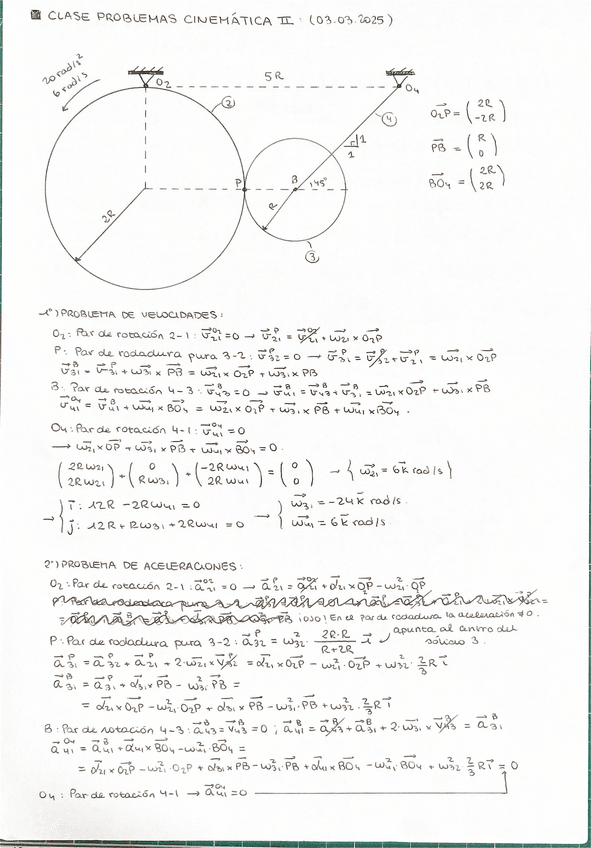 CLASE PROBLEMAS CINEMÁTICA II: (03.03.2025)
20 rad/s²
6 rad/s
O₂
5R
O₄
②
④
1
1
P
B
45°
2R
R
③
O₂P = (2R, -2R)
PB = (R, 0)
BO₄ = (2R, 2R)
1º) PROBLEMA DE VELOCIDADES:
O₂: Par de rotación 2-1: v₂₁^O₂ = 0 → v₂₁^P = v₂₁^O₂ + ω₂₁ × O₂P
P: Par de rodadura pura 3-2: v₃₂^P = 0 → v₃₁^P = v₃₂^P + v₂₁^P = ω₂₁ × O₂P
v₃₁^B = v₃₁^P + ω₃₁ × PB = ω₂₁ × O₂P + ω₃₁ × PB
B: Par de rotación 4-3: v₄₃^B = 0 → v₄₁^B = v₄₃^B + v₃₁^B = ω₂₁ × O₂P + ω₃₁ × PB
v₄₁^O₄ = v₄₁^B + ω₄₁ × BO₄ = ω₂₁ × O₂P + ω₃₁ × PB + ω₄₁ × BO₄.
O₄: Par de rotación 4-1: v₄₁^O₄ = 0
→ ω₂₁ × OP + ω₃₁ × PB + ω₄₁ × BO₄ = 0.
(2Rω₂₁, 2Rω₂₁) + (0, Rω₃₁) + (-2Rω₄₁, 2Rω₄₁) = (0, 0) → { ω₂₁ = 6k rad/s }
→ { i: 12R - 2Rω₄₁ = 0 → { ω₃₁ = -24k rad/s.
j: 12R + Rω₃₁ + 2Rω₄₁ = 0 ω₄₁ = 6k rad/s.
2º) PROBLEMA DE ACELERACIONES:
O₂: Par de rotación 2-1: a₂₁^O₂ = 0 → a₂₁^P = a₂₁^O₂ + α₂₁ × OP - ω₂₁² · OP
¡OJO! En el par de rodadura la aceleración ≠ 0.
P: Par de rodadura pura 3-2: a₃₂^P = ω₃₂² · 2R·R/(R+2R) i apunta al centro del sólido 3.
a₃₁^P = a₃₂^P + a₂₁^P + 2·ω₂₁ × v₃₂^P = α₂₁ × O₂P - ω₂₁² · O₂P + ω₃₂² · 2/3 R i
a₃₁^B = a₃₁^P + α₃₁ × PB - ω₃₁² PB =
= α₂₁ × O₂P - ω₂₁² O₂P + α₃₁ × PB - ω₃₁² · PB + ω₃₂² · 2/3 R i
B: Par de rotación 4-3: a₄₃^B = v₄₃^B = 0 ; a₄₁^B = a₄₃^B + a₃₁^B + 2·ω₃₁ × v₄₃^B = a₃₁^B
a₄₁^O₄ = a₄₁^B + α₄₁ × BO₄ - ω₄₁² BO₄ =
= α₂₁ × O₂P - ω₂₁² · O₂P + α₃₁ × PB - ω₃₁² · PB + α₄₁ × BO₄ - ω₄₁² BO₄ + ω₃₂² · 2/3 R i = 0
O₄: Par de rotación 4-1 → a₄₁^O₄ = 0